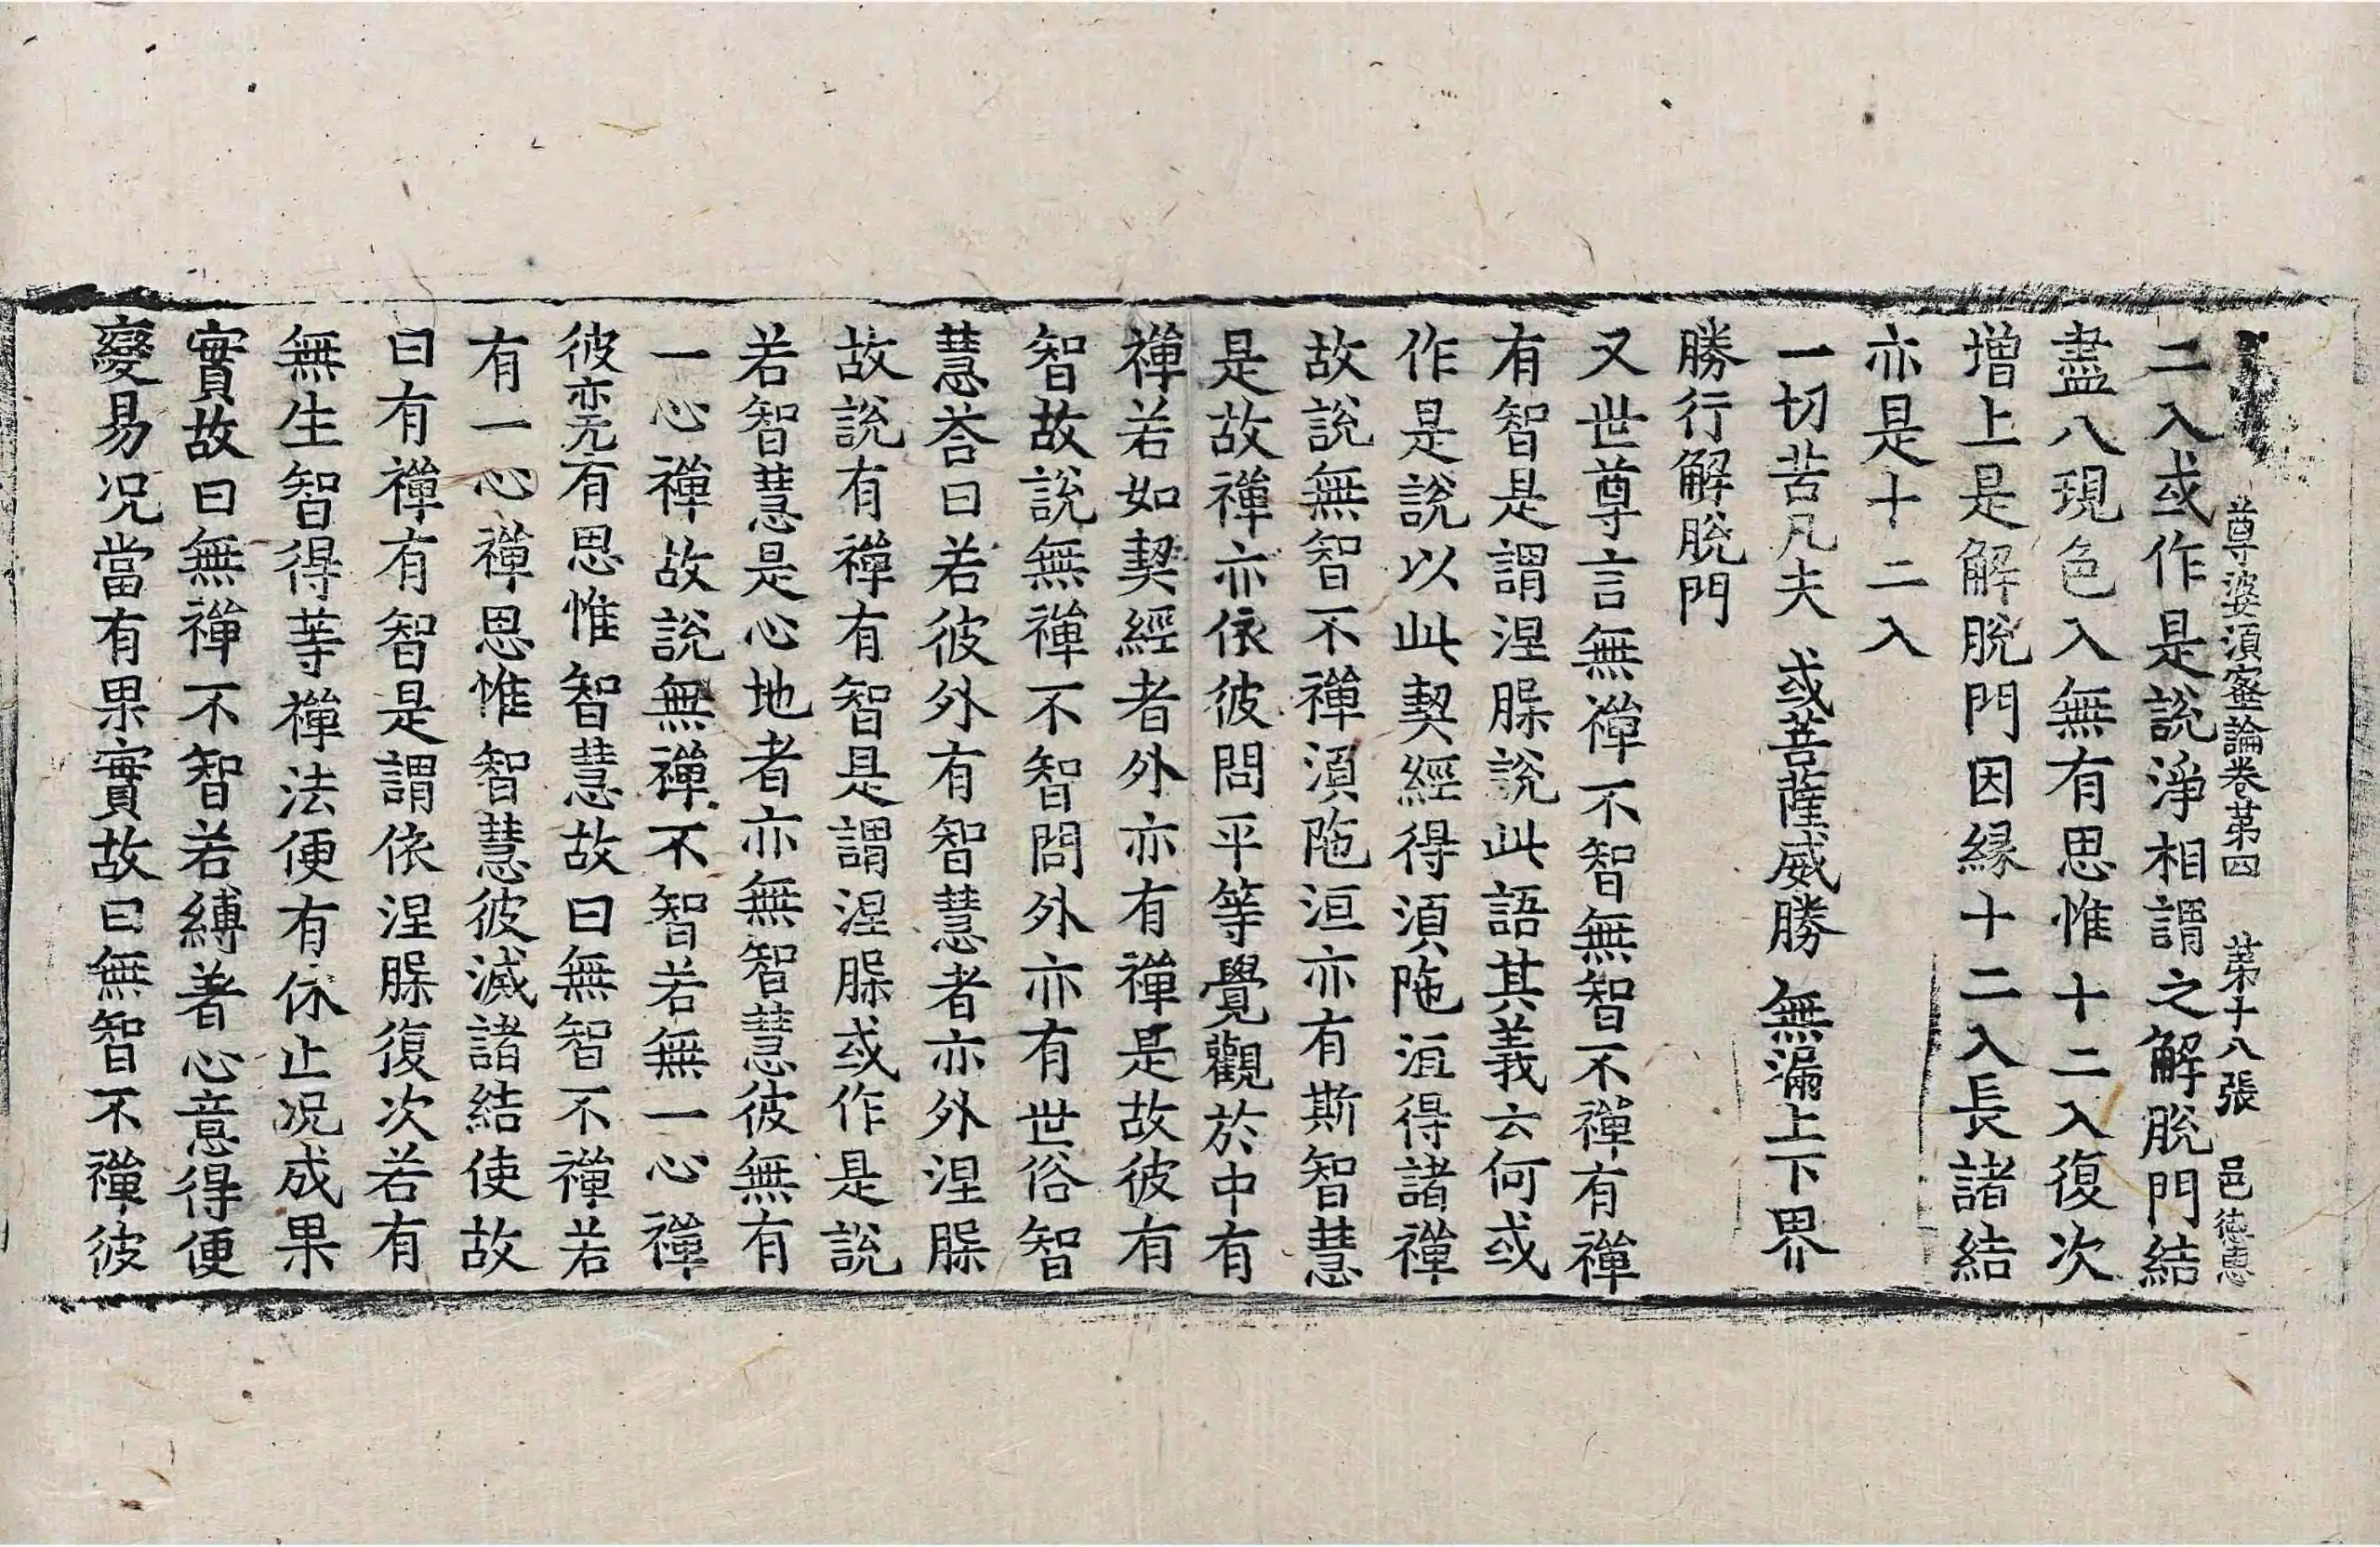 尊婆須蜜論卷苐四　苐十八張　邑德惠
二入或作是說淨相謂之解脫門結
盡八現色入無有思惟十二入復次
增上是解脫門因緣十二入長諸結
亦是十二入
一切苦凡夫　或菩薩威勝　無漏上下界
勝行解脫門
又世尊言無禪不智無智不禪有禪
有智是謂涅脲說此語其義云何或
作是說以此契經得湏陁洹得諸禪
故說無智不禪湏陁洹亦有斯智慧
是故禪亦依彼問平等覺觀於中有
禪若如契經者外亦有禪是故彼有
智故說無禪不智問外亦有世俗智
慧荅曰若彼外有智慧者亦外涅脲
故說有禪有智是謂涅脲或作是說
若智慧是心地者亦無智慧彼無有
一心禪故說無禪不智若無一心禪
彼亦无有思惟智慧故曰無智不禪若
有一心禪思惟智慧彼滅諸結使故
曰有禪有智是謂依涅脲復次若有
無生智得等禪法便有休止况成果
實故曰無禪不智若縛著心意得便
變易况當有果實故曰無智不禪彼